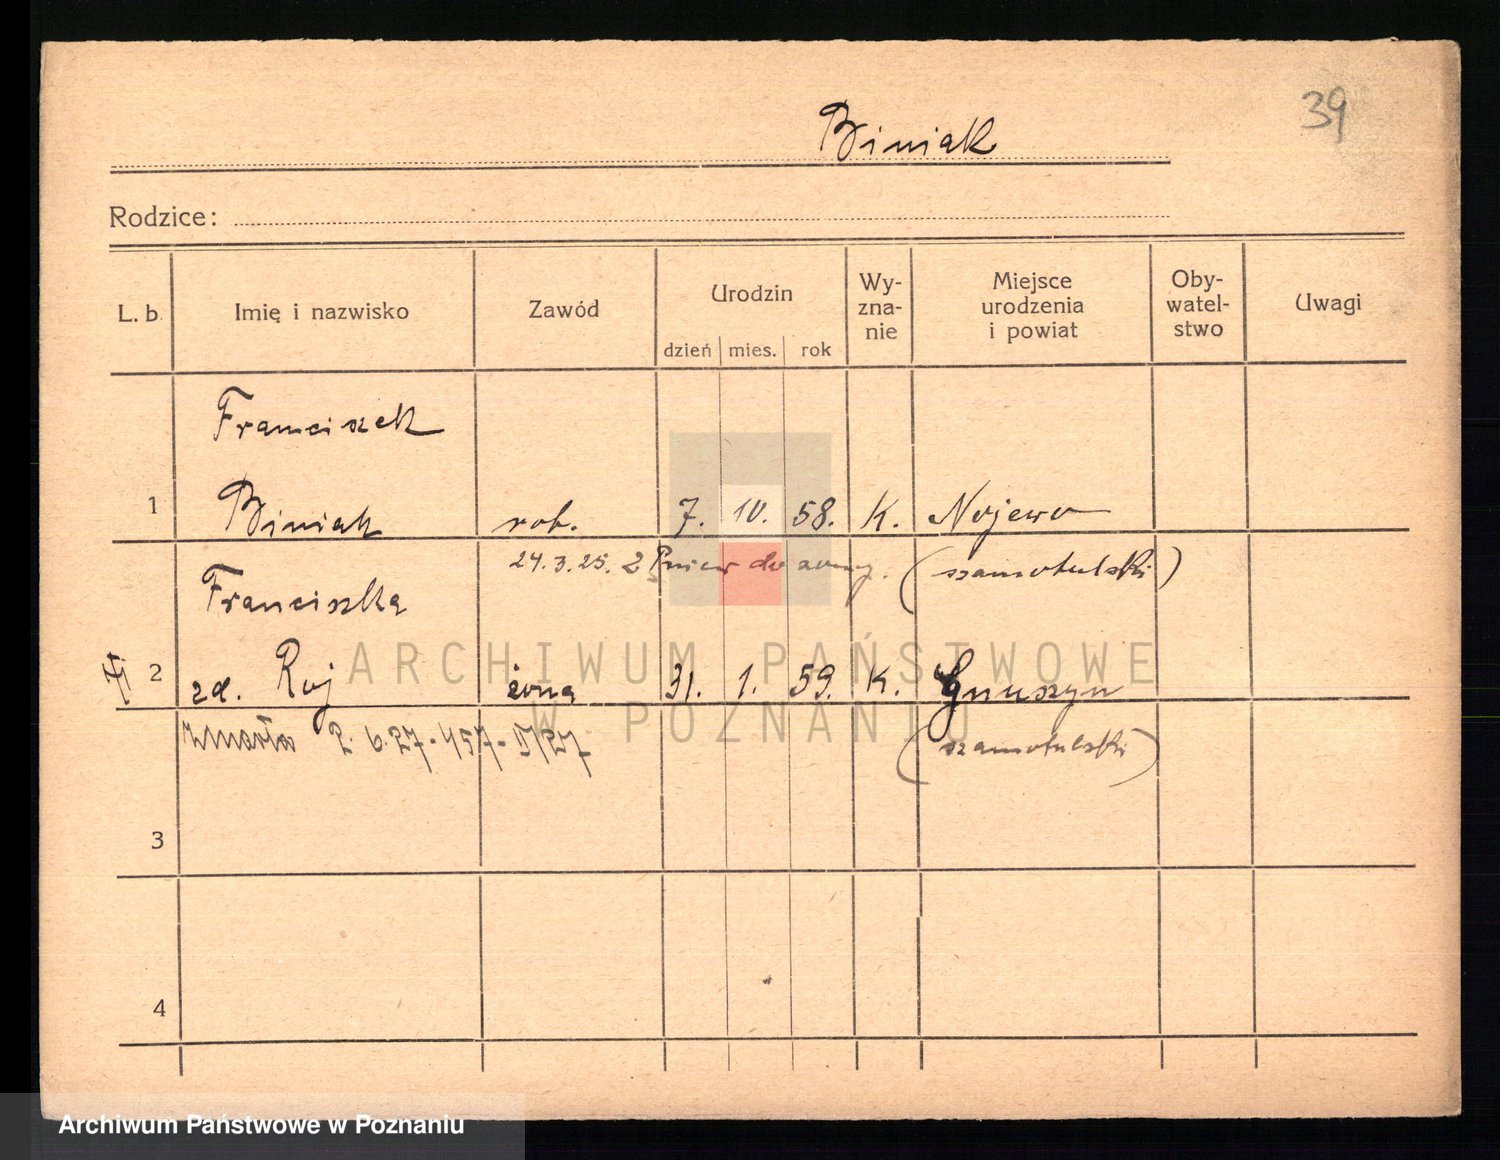 39
Biniak
Rodzice:
L. b. Imię i nazwisko Zawód Urodzin dzień mies. rok Wy-zna-nie Miejsce urodzenia i powiat Oby-watel-stwo Uwagi
Franciszek
1 Biniak rob. 7. 10. 58. K. Nojewo
24.3.25. z Pniew do żony. (szamotulski)
Franciszka
2 zd. Roj żona 31. 1. 59. K. Gnuszyn
zmarła 2.6.27. (szamotulski)
3
4
ARCHIWUM PAŃSTWOWE
W POZNANIU
Archiwum Państwowe w Poznaniu